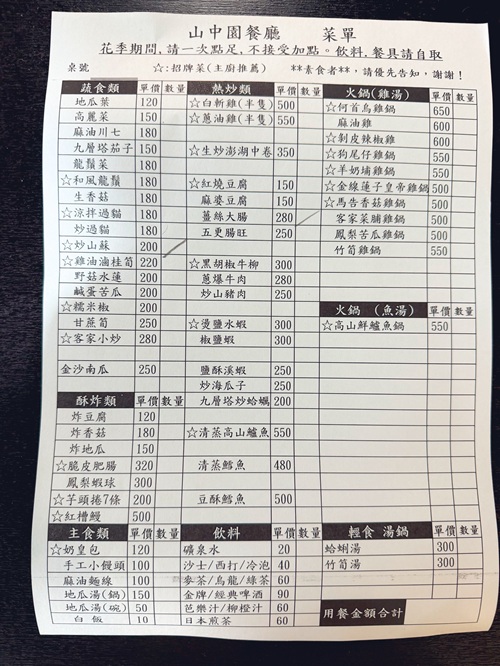 山中園餐廳 菜單
花季期間,請一次點足,不接受加點。飲料,餐具請自取
桌號 ☆:招牌菜(主廚推薦) **素食者**,請優先告知,謝謝!
蔬食類 單價 數量
地瓜葉 120
高麗菜 150
麻油川七 180
九層塔茄子 150
龍鬚菜 180
☆和風龍鬚 180
生香菇 180
☆涼拌過貓 180
炒過貓 180
☆炒山蘇 200
☆雞油滷桂筍 220
野菇水蓮 200
鹹蛋苦瓜 200
☆糯米椒 200
甘蔗筍 250
☆客家小炒 280
金沙南瓜 250
酥炸類 單價 數量
炸豆腐 120
炸香菇 180
炸地瓜 150
☆脆皮肥腸 320
鳳梨蝦球 300
☆芋頭捲7條 200
☆紅槽鰻 500
主食類 單價 數量
☆奶皇包 120
手工小饅頭 100
麻油麵線 100
地瓜湯(鍋) 150
地瓜湯(碗) 50
白飯 10
熱炒類 單價 數量
☆白斬雞(半隻) 500
☆蔥油雞(半隻) 550
☆生炒澎湖中卷 350
☆紅燒豆腐 150
麻婆豆腐 150
薑絲大腸 280
五更腸旺 250
☆黑胡椒牛柳 300
蔥爆牛肉 280
炒山豬肉 250
☆燙鹽水蝦 300
椒鹽蝦 300
鹽酥溪蝦 250
炒海瓜子 250
九層塔炒蛤蠣 200
☆清蒸高山鱸魚 550
清蒸鱈魚 480
豆酥鱈魚 500
飲料 單價 數量
礦泉水 20
沙士/西打/冷泡 40
麥茶/烏龍/綠茶 60
金牌/經典啤酒 90
芭樂汁/柳橙汁 60
日本煎茶 60
火鍋(雞湯) 單價 數量
☆何首烏雞鍋 650
麻油雞 600
☆剝皮辣椒雞 600
☆狗尾仔雞鍋 550
☆羊奶埔雞鍋 550
☆金線蓮子皇帝雞鍋 500
☆馬告香菇雞鍋 500
客家菜脯雞鍋 500
鳳梨苦瓜雞鍋 500
竹筍雞鍋 500
火鍋 (魚湯) 單價 數量
☆高山鮮鱸魚鍋 550
輕食 湯鍋 單價 數量
蛤蜊湯 300
竹筍湯 300
用餐金額合計